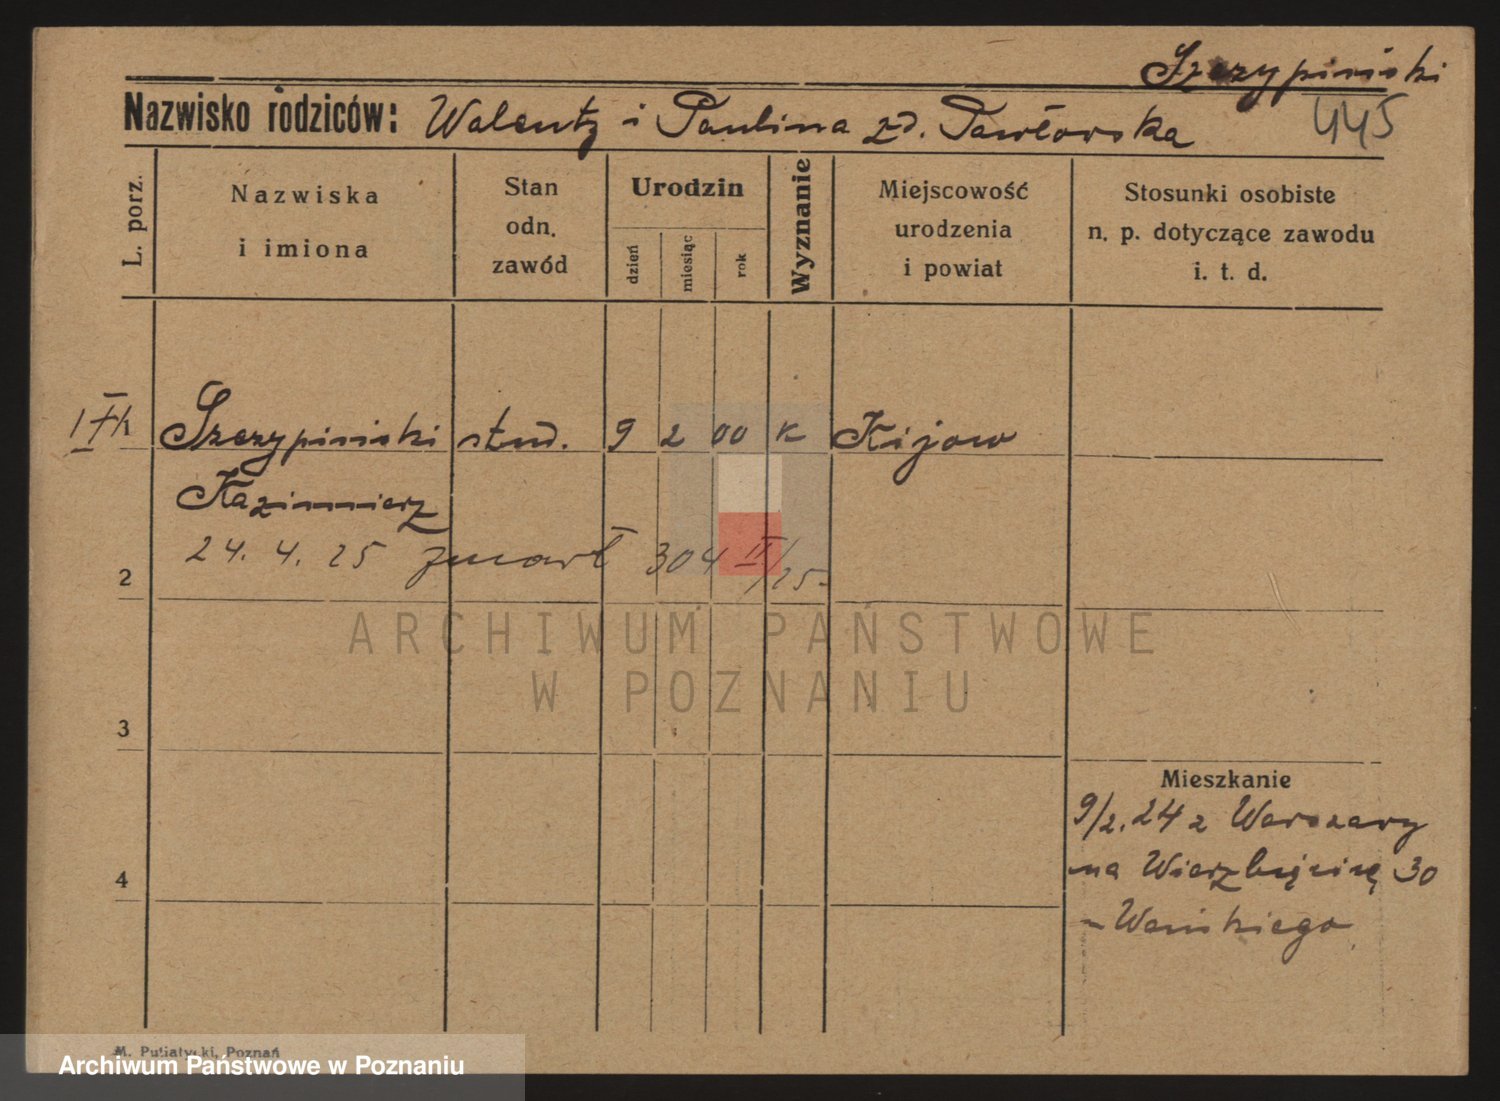 Szczypiński
445
Nazwisko rodziców: Walenty i Paulina zd. Pawłowska
L. porz.
Nazwiska
i imiona
Stan
odn.
zawód
Urodzin
dzień
miesiąc
rok
Wyznanie
Miejscowość
urodzenia
i powiat
Stosunki osobiste
n. p. dotyczące zawodu
i. t. d.
1 Szczypiński stud. 9 2 00 K Kijow
Kazimierz
24. 4. 25 zmarł 304 II/25
2
ARCHIWUM PAŃSTWOWE
W POZNANIU
3
Mieszkanie
9/2. 24 z Warszawy
na Wierzbięcice 30
4
M. Putiatycki, Poznań
Archiwum Państwowe w Poznaniu